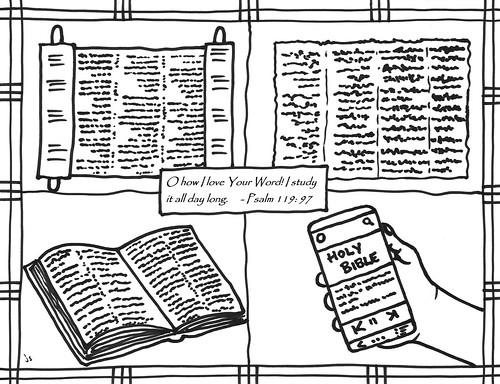 O how I love Your Word! I study
it all day long. - Psalm 119: 97
HOLY
BIBLE
js